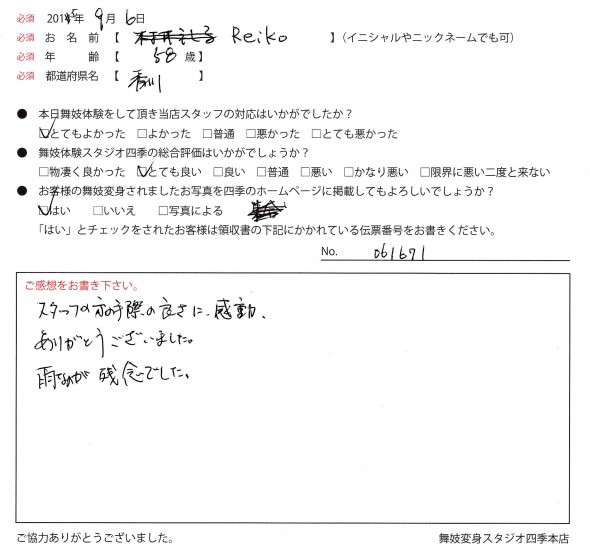 必須 2015年 9月 6日
必須 お名前【 Reiko 】（イニシャルやニックネームでも可）
必須 年齢【 58 歳】
必須 都道府県名【 香川 】
● 本日舞妓体験をして頂き当店スタッフの対応はいかがでしたか？
☑とてもよかった □よかった □普通 □悪かった □とても悪かった
● 舞妓体験スタジオ四季の総合評価はいかがでしょうか？
□物凄く良かった ☑とても良い □良い □普通 □悪い □かなり悪い □限界に悪い二度と来ない
● お客様の舞妓変身されましたお写真を四季のホームページに掲載してもよろしいでしょうか？
☑はい □いいえ □写真による
「はい」とチェックをされたお客様は領収書の下記にかかれている伝票番号をお書きください。
No. 061671
ご感想をお書き下さい。
スタッフの方の手際の良さに、感動、
ありがとうございました。
雨なのが残念でした。
ご協力ありがとうございました。
舞妓変身スタジオ四季本店